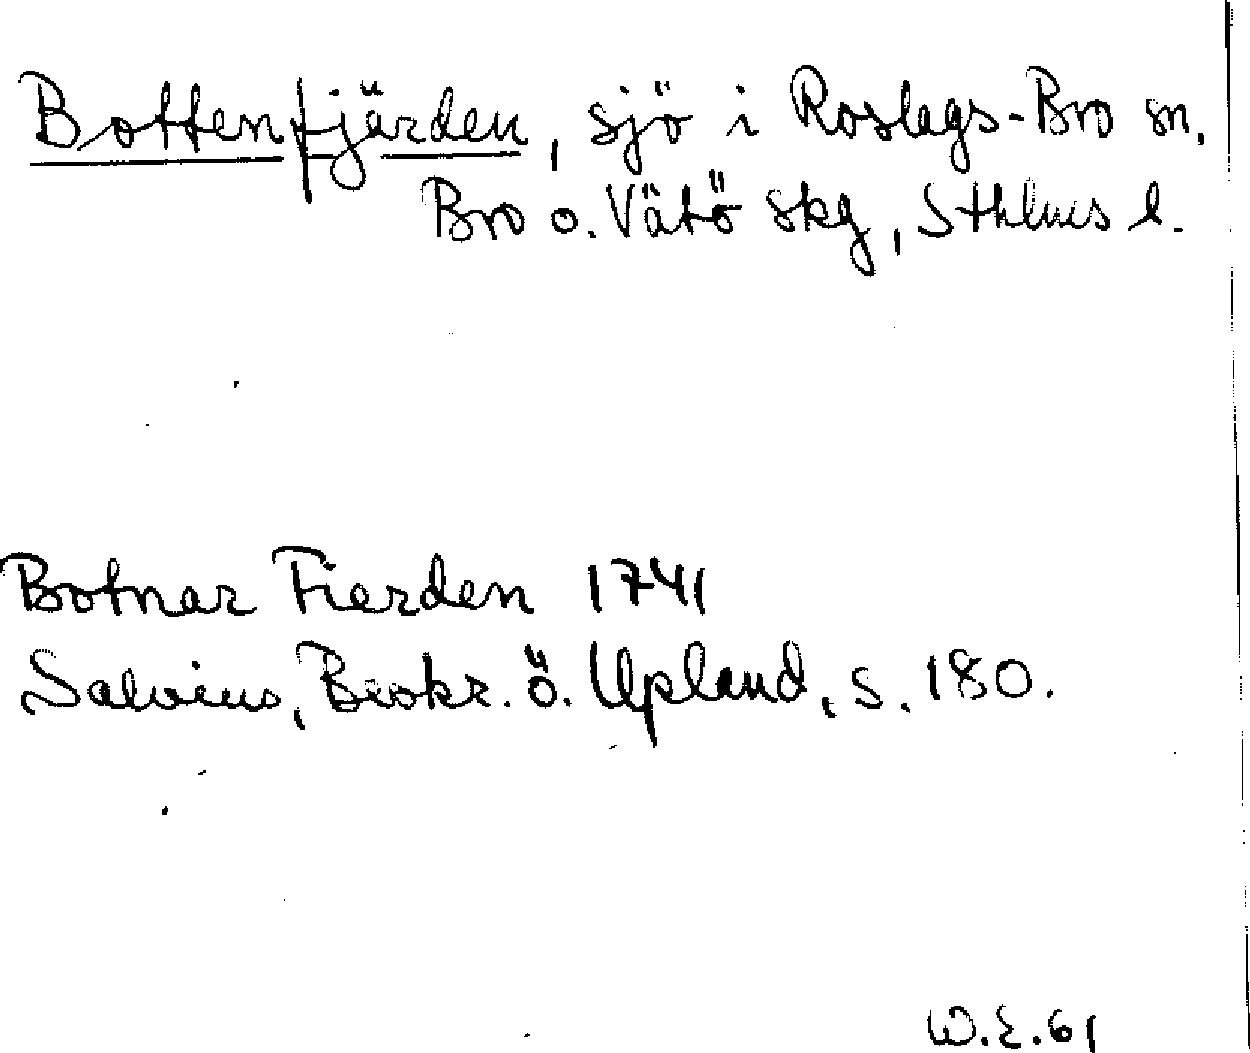 Bottenfjärden, sjö i Roslags-Bro sn,
Bro o. Vätö skg, Sthlms l.
Botnar Fierden 1741
Salvius, Beskr. ö. Upland, s. 180.
W.E.61